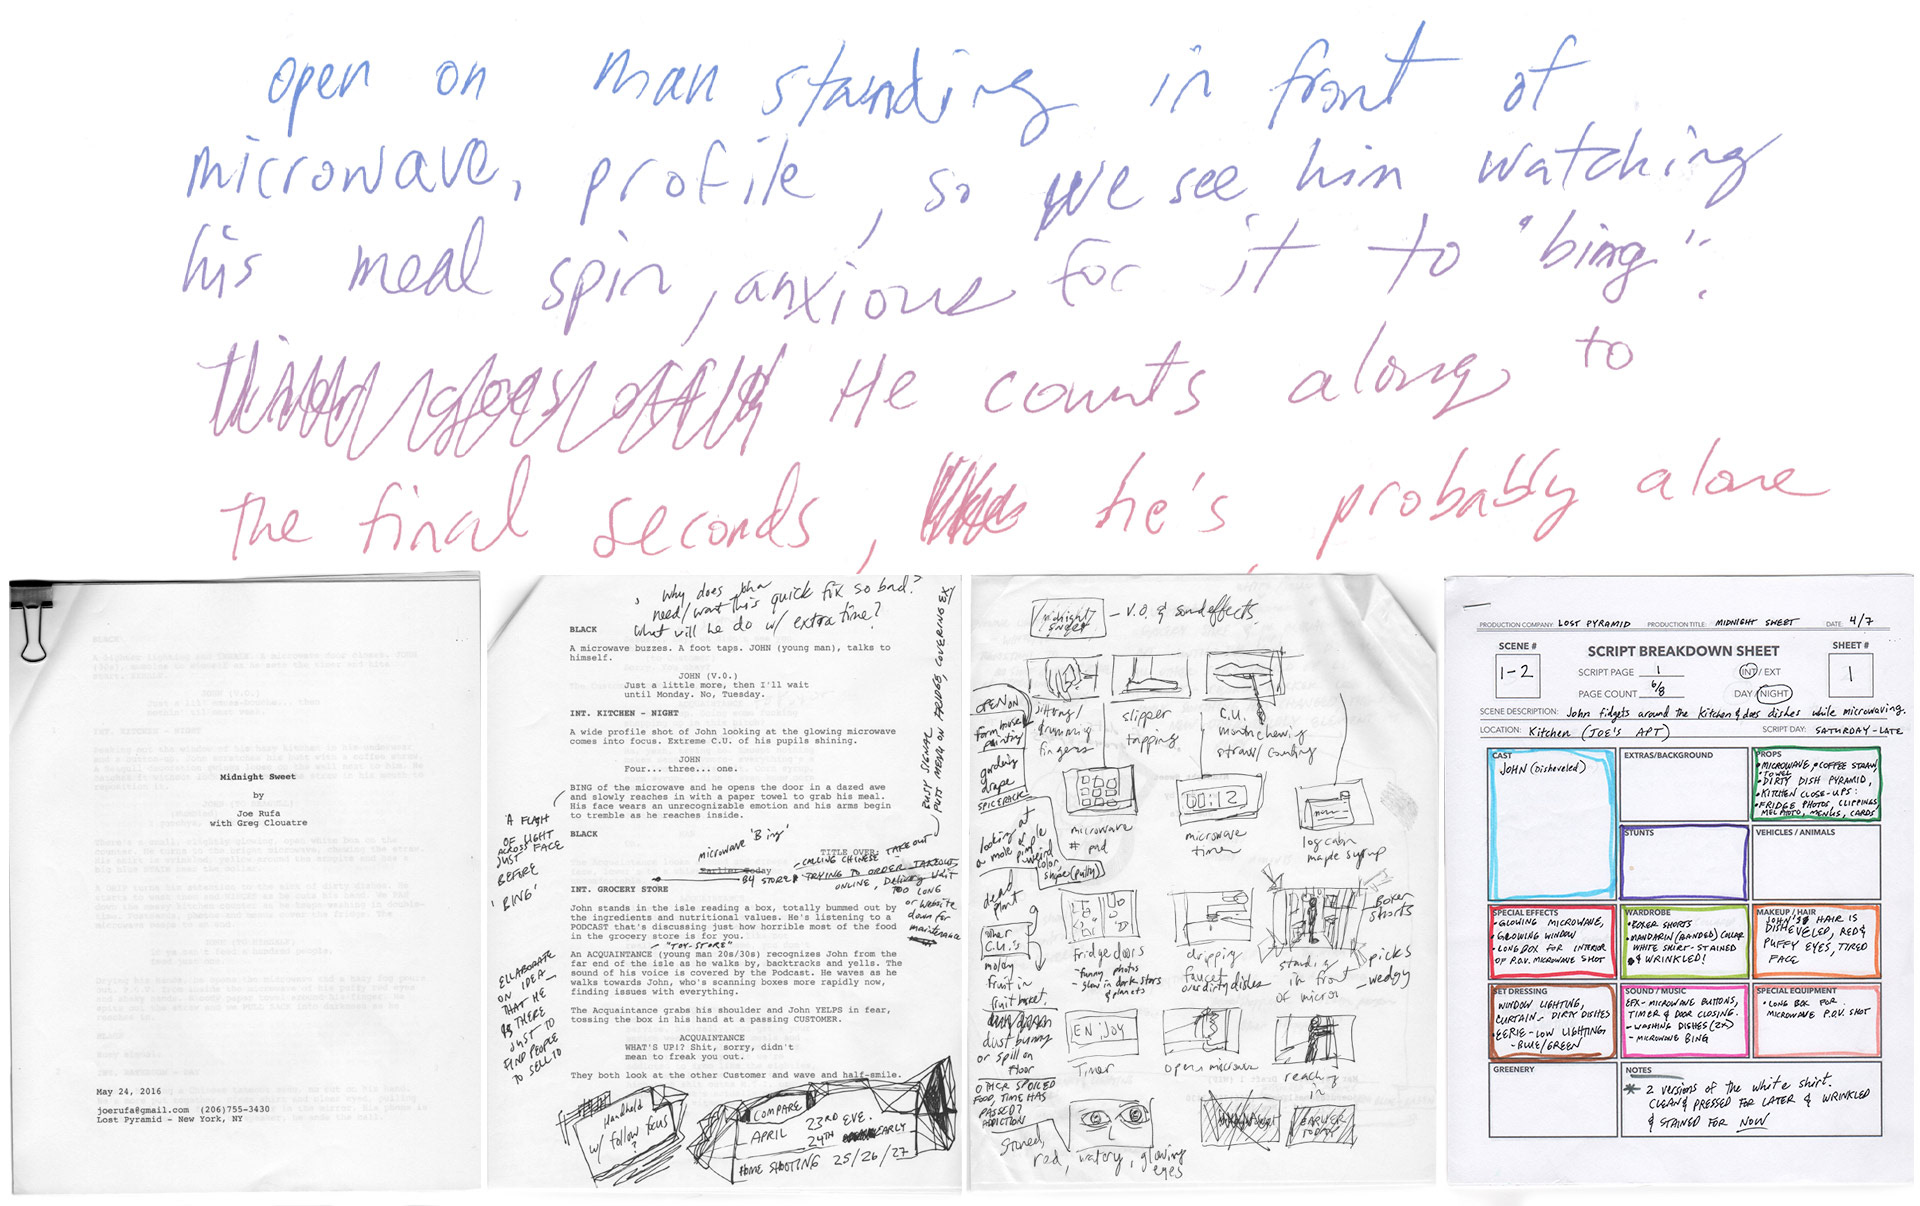 open on man standing in front of
microwave, profile, so we see him watching
his meal spin, anxious for it to "bing".
He counts along to
the final seconds, he's probably alone
Midnight Sweet
by
Joe Rufa
with Greg Clouatre
May 24, 2016
joerufa@gmail.com (206)755-3430
Lost Pyramid - New York, NY
Why does John
need/want this quick fix so bad?
What will he do w/ extra time?
BLACK
A microwave buzzes. A foot taps. JOHN (young man), talks to
himself.
JOHN (V.O.)
Just a little more, then I'll wait
until Monday. No, Tuesday.
INT. KITCHEN - NIGHT
A wide profile shot of John looking at the glowing microwave
comes into focus. Extreme C.U. of his pupils shining.
JOHN
Four... three... one.
BING of the microwave and he opens the door in a dazed awe
and slowly reaches in with a paper towel to grab his meal.
His face wears an unrecognizable emotion and his arms begin
to tremble as he reaches inside.
BLACK
TITLE OVER:
Earlier Today
INT. GROCERY STORE
John stands in the isle reading a box, totally bummed out by
the ingredients and nutritional values. He's listening to a
PODCAST that's discussing just how horrible most of the food
in the grocery store is for you.
An ACQUAINTANCE (young man 20s/30s) recognizes John from the
far end of the isle as he walks by, backtracks and yells. The
sound of his voice is covered by the Podcast. He waves as he
walks towards John, who's scanning boxes more rapidly now,
finding issues with everything.
The Acquaintance grabs his shoulder and John YELPS in fear,
tossing the box in his hand at a passing CUSTOMER.
ACQUAINTANCE
WHAT'S UP!? Shit, sorry, didn't
mean to freak you out.
They both look at the other Customer and wave and half-smile.
BUSY SIGNAL
PUTS MENU ON FRIDGE, COVERING EX
'A FLASH
OF LIGHT
ACROSS FACE
JUST
BEFORE
'BING'
microwave 'Bing'
CALLING CHINESE TAKE OUT
BY STORE, TRYING TO ORDER TAKEOUT
ONLINE, Delivery Wait
TOO LONG
or website
down for
maintenance
"TOY-STORE"
ELLABORATE
ON IDEA
THAT HE
IS THERE
JUST TO
FIND PEOPLE
TO SELL TO
Handheld
w/ follow focus
?
COMPARE
APRIL 23RD EVE.
24TH EARLY
HOME SHOOTING 25/26/27
Midnight
Sweet
- V.O. & sound effects
OPEN ON
farm house
painting
gondring
drape
SPICERACK
sitting/
drumming
fingers
slipper
tapping
C.U.
mouth chewing
straw/counting
looking at
a mole or pimple
weird
color,
shape (pulley)
microwave
# pad
00:12
microwave
timer
log cabin
maple syrup
dead
plant
other
C.U.'s
moldy
fruit in
fruit basket
dust bunny
or spill on
floor
fridge doors
- funny photos
- glow in dark stars
& planets
dripping
faucet
over dirty dishes
standing
in front
of micro
Boxer
shorts
picks
wedgy
EN:JOY
Timer
opens microwave
reaching
in
OTHER SPOILED
FOOD, TIME HAS
PASSED?
ADDICTION
Stoned,
red, watory, glowing
eyes
EARLIER
TODAY
PRODUCTION COMPANY: LOST PYRAMID PRODUCTION TITLE: MIDNIGHT SWEET DATE: 4/7
SCENE # SCRIPT BREAKDOWN SHEET SHEET #
1-2 SCRIPT PAGE 1 INT/EXT 1
PAGE COUNT 6/8 DAY/NIGHT
SCENE DESCRIPTION: John fidgets around the kitchen & does dishes while microwaving.
LOCATION: Kitchen (JOE'S APT) SCRIPT DAY: SATURDAY-LATE
CAST
JOHN (Disheveled)
EXTRAS/BACKGROUND
PROPS
• MICROWAVE, • COFFEE STRAW,
• TOWEL
• DIRTY DISH PYRAMID,
• KITCHEN CLOSE-UPS:
• FRIDGE PHOTOS, CLIPPINGS,
MEL AIOTO, MENUS, CARDS
STUNTS
VEHICLES / ANIMALS
SPECIAL EFFECTS
• GLOWING MICROWAVE,
• GROWING WINDOW
• LONG BOX FOR INTERIOR
OF P.O.V. MICROWAVE SHOT
WARDROBE
• BOXER SHORTS
• MANDARIN (BANDED) COLLAR
WHITE SHIRT - STAINED
& WRINKLED!
MAKEUP / HAIR
JOHN'S HAIR IS
DISHEVELED, RED &
PUFFY EYES, TIRED
FACE
SET DRESSING
WINDOW LIGHTING,
CURTAIN - DIRTY DISHES
• EERIE-LOW LIGHTING
- BLUE/GREEN
SOUND / MUSIC
EFX- MICROWAVE BUTTONS,
TIMER & DOOR CLOSING.
- WASHING DISHES (2X)
- MICROWAVE BING
SPECIAL EQUIPMENT
• LONG BOX FOR
MICROWAVE P.O.V. SHOT
GREENERY
NOTES
* 2 VERSIONS OF THE WHITE SHIRT.
CLEAN & PRESSED FOR LATER & WRINKLED
& STAINED FOR NOW